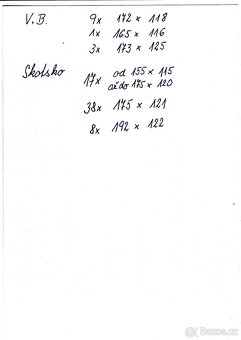 V.B. 9x 172 x 118
1x 165 x 116
3x 173 x 125
Skotsko 17x od 155 x 115
až do 175 x 120
38x 175 x 121
8x 192 x 122
Bazos.cz